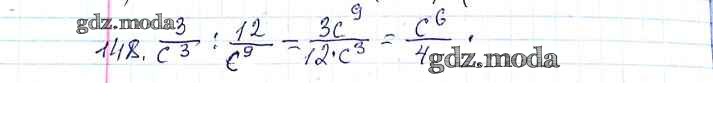 gdz.moda
148. 3/c³ : 12/c⁹ = 3c⁹/12·c³ = c⁶/4.
gdz.moda